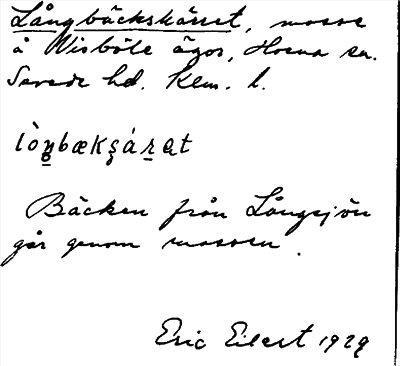 Långbäckskärret, mosse
å Wisböle ägor, Hosna sn.
Sevede hd. Klm. l.
Bäcken från Långsjön
går genom mossen.
Eric Eilert 1929